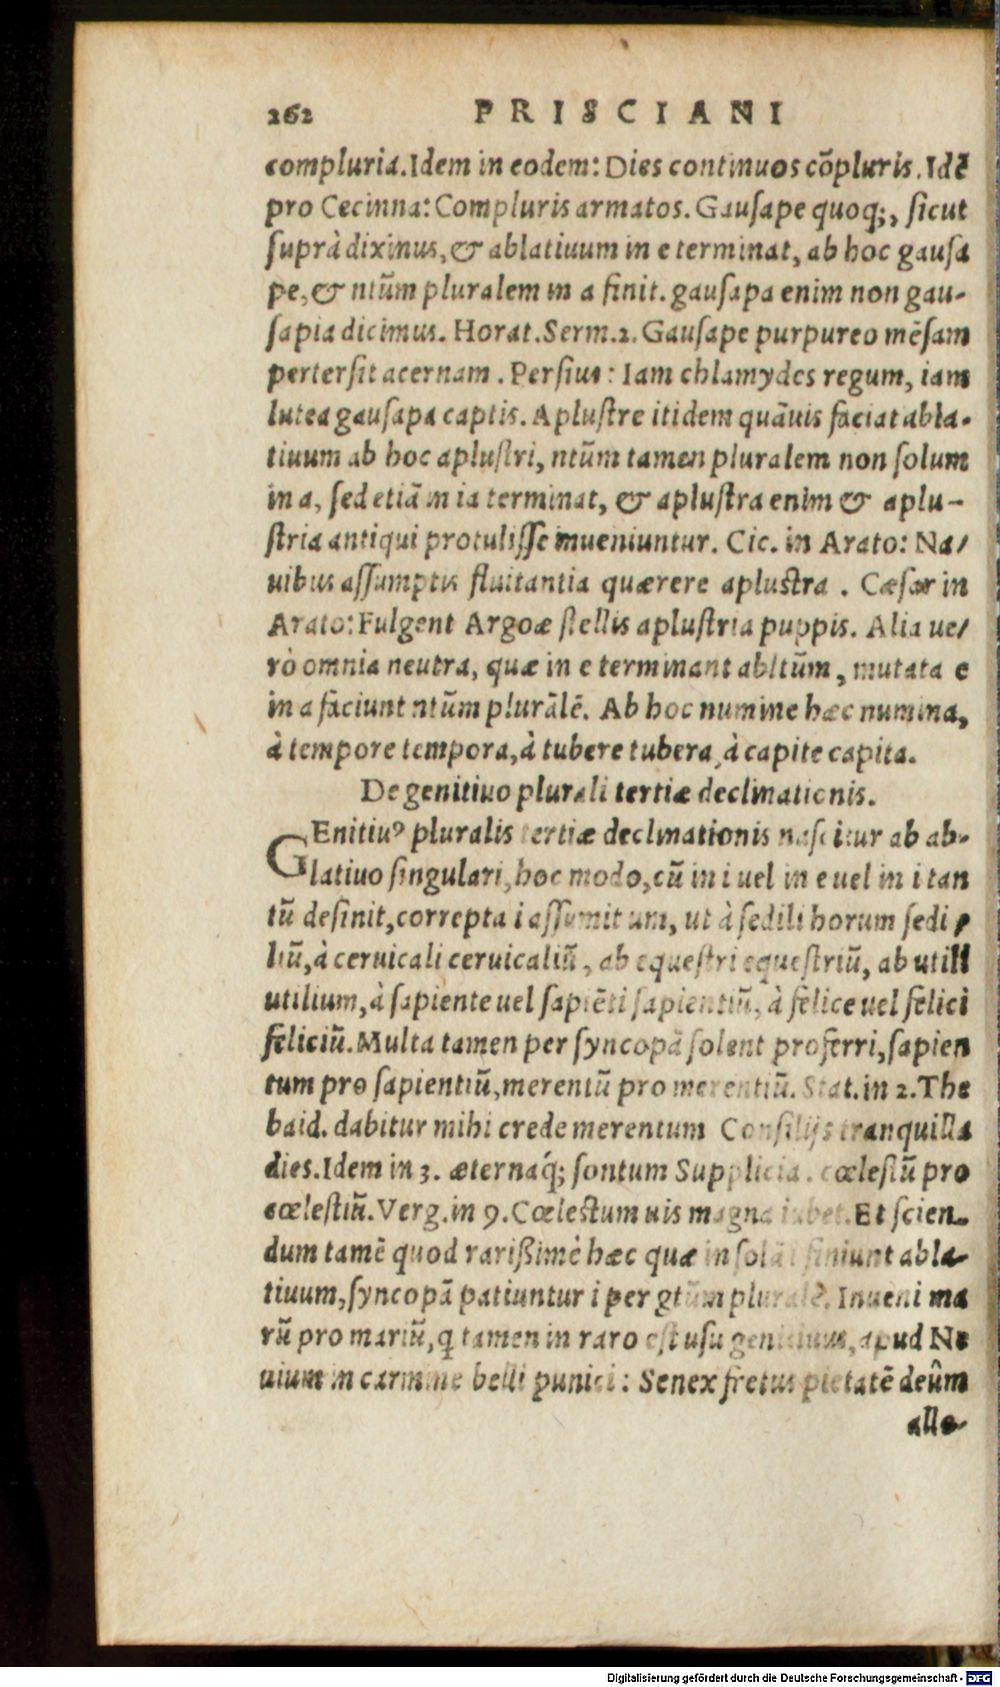 262 PRISCIANI
compluria. Idem in eodem: Dies continuos cõpluris. Idẽ
pro Cecinna: Compluris armatos. Gauſape quoq;, ſicut
ſuprà diximus, & ablatiuum in e terminat, ab hoc gauſa
pe, & ntũm pluralem in a finit. gauſapa enim non gau-
ſapia dicimus. Horat. Serm. 2. Gauſape purpureo mẽſam
perterſit acernam. Perſius: Iam chlamydes regum, iam
lutea gauſapa captis. Apluſtre itidem quãuis faciat abla-
tiuum ab hoc apluſtri, ntũm tamen pluralem non ſolum
in a, ſed etiã in ia terminat, & apluſtra enim & aplu-
ſtria antiqui protuliſſe inueniuntur. Cic. in Arato: Na/
uibus aſſumptis fluitantia quærere apluſtra. Cæſar in
Arato: Fulgent Argoæ ſtellis apluſtria puppis. Alia ue/
rò omnia neutra, quæ in e terminant abltũm, mutata e
in a faciunt ntũm plurãlẽ. Ab hoc numine hæc numina,
à tempore tempora, à tubere tubera, à capite capita.
De genitiuo plurali tertiæ declinationis.
GEnitiuꝰ pluralis tertiæ declinationis naſcitur ab ab-
latiuo ſingulari, hoc modo, cũ in i uel in e uel in i tan
tũ deſinit, correpta i aſſumit um, ut à ſedili horum ſedi
liũ, à ceruicali ceruicaliũ, ab equeſtri equeſtriũ, ab utili
utilium, à ſapiente uel ſapiẽti ſapientiũ, à felice uel felici
feliciũ. Multa tamen per ſyncopã ſolent proferri, ſapien
tum pro ſapientiũ, merentũ pro merentiũ. Stat. in 2. The
baid. dabitur mihi crede merentum Conſilijs tranquilla
dies. Idem in 3. æternaq́; ſontum Supplicia. cœleſtũ pro
cœleſtiũ. Verg. in 9. Cœleſtum uis magna iubet. Et ſcien-
dum tamẽ quod rarißimè hæc quæ in ſolã i finiunt abla-
tiuum, ſyncopã patiuntur i per gtũm pluralẽ. Inueni ma
rũ pro mariũ, ꝙ tamen in raro eſt uſu genitiuus, apud Ne
uium in carmine belli punici: Senex fretus pietatẽ deûm
alle-
Digitalisierung gefördert durch die Deutsche Forschungsgemeinschaft - DFG